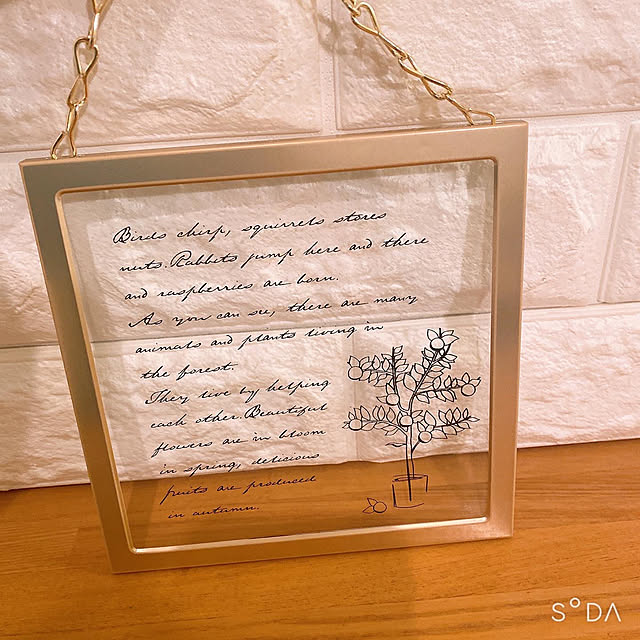 Birds chirp, squirrels stores
nuts. Rabbits jump here and there
and raspberries are born.
As you can see, there are many
animals and plants living in
the forest.
They live by helping
each other. Beautiful
flowers are in bloom
in spring, delicious
fruits are produced
in autumn.
SODA